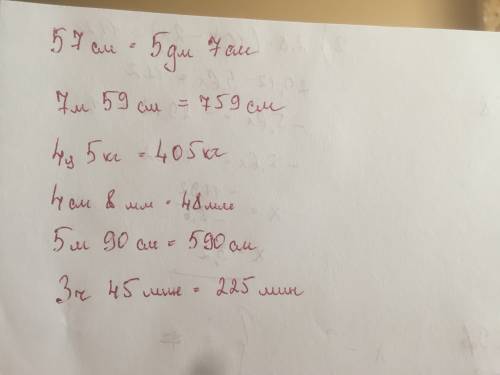 57 см = 5дм 7см
7м 59 см = 759 см
4ц 5кг = 405кг
4см 8 мм = 48мм
5м 90 см = 590 см
3ч 45 мин = 225 мин